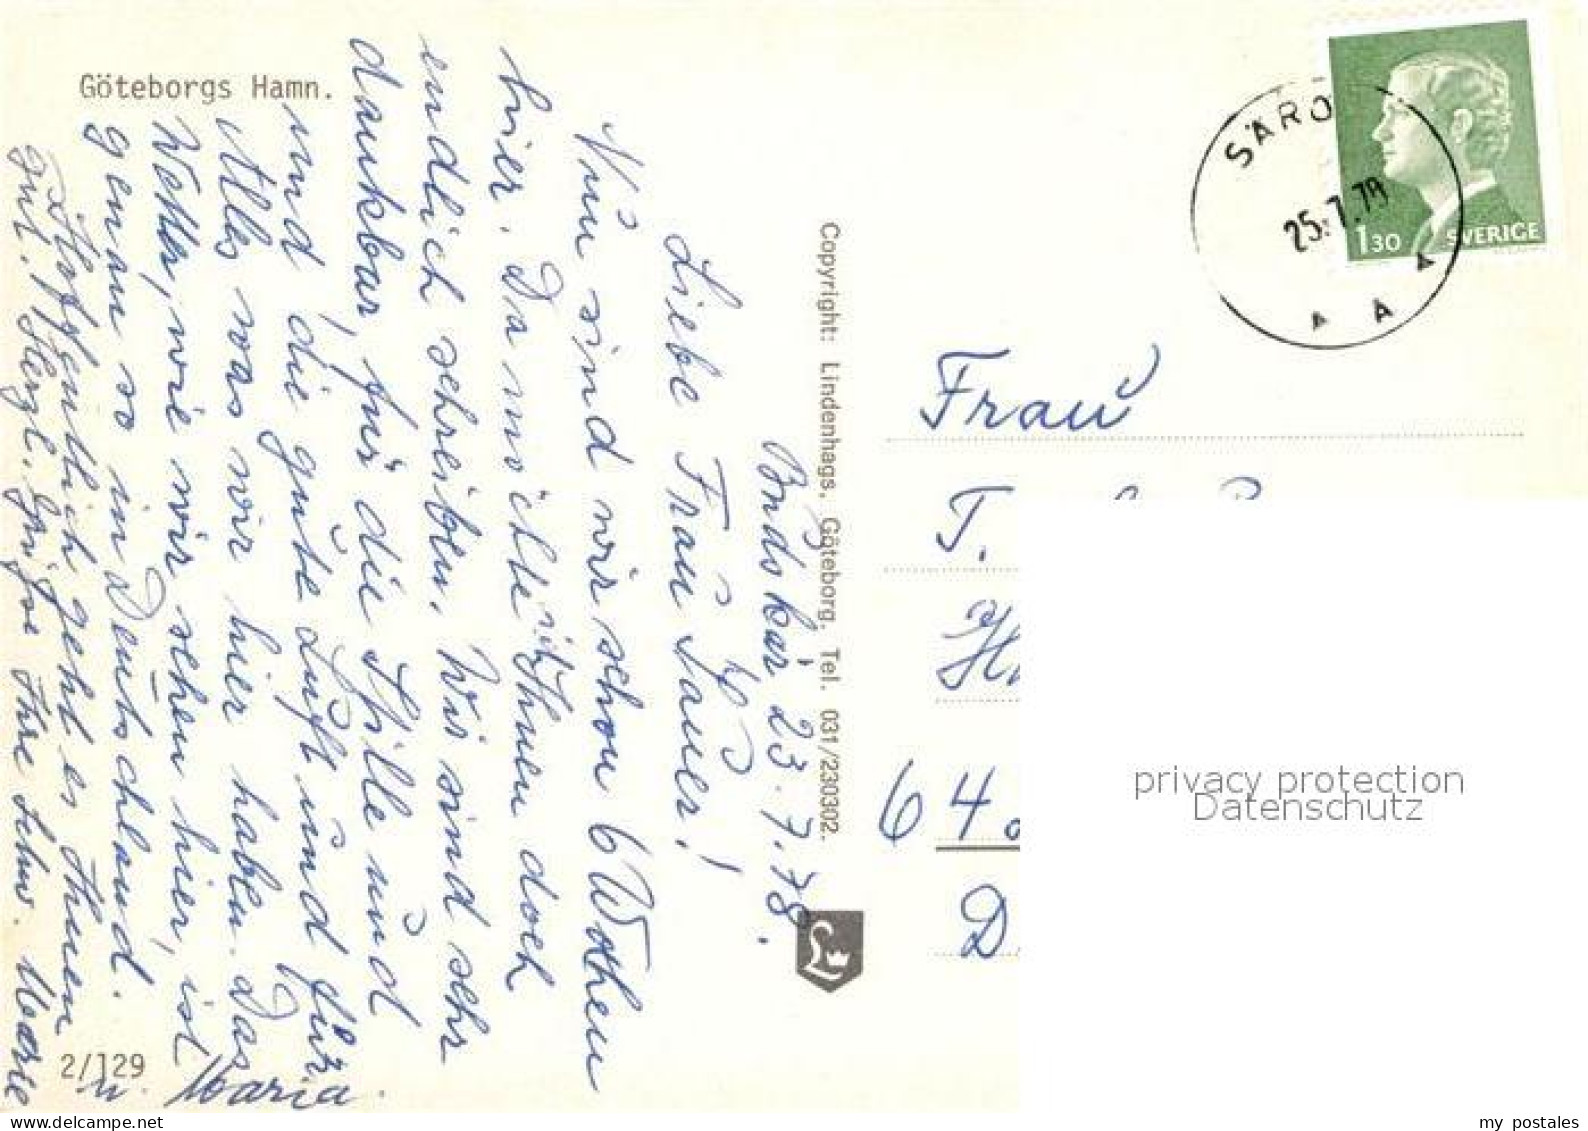 Göteborgs Hamn.
Budskär 23.7.78.
Liebe Frau Sauer!
Nun sind wir schon 6 Wochen
hier. Da möchte ich Ihnen doch
endlich schreiben. Wir sind sehr
dankbar, für die Stille und
und die gute Luft und fürs
Alles was wir hier haben. Das
Wetter, wie wir sehen hier, ist
genau so in Deutschland.
Hoffentlich geht es Ihnen
gut. Herzl. Grüße Ihre Schw. Marie
u. Maria.
2/129
Copyright: Lindenhags, Göteborg, Tel. 031/230302.
L
SÄRÖ
25.7.78
1 30 SVERIGE
Frau
T.
64
D
privacy protection
Datenschutz
my_postales